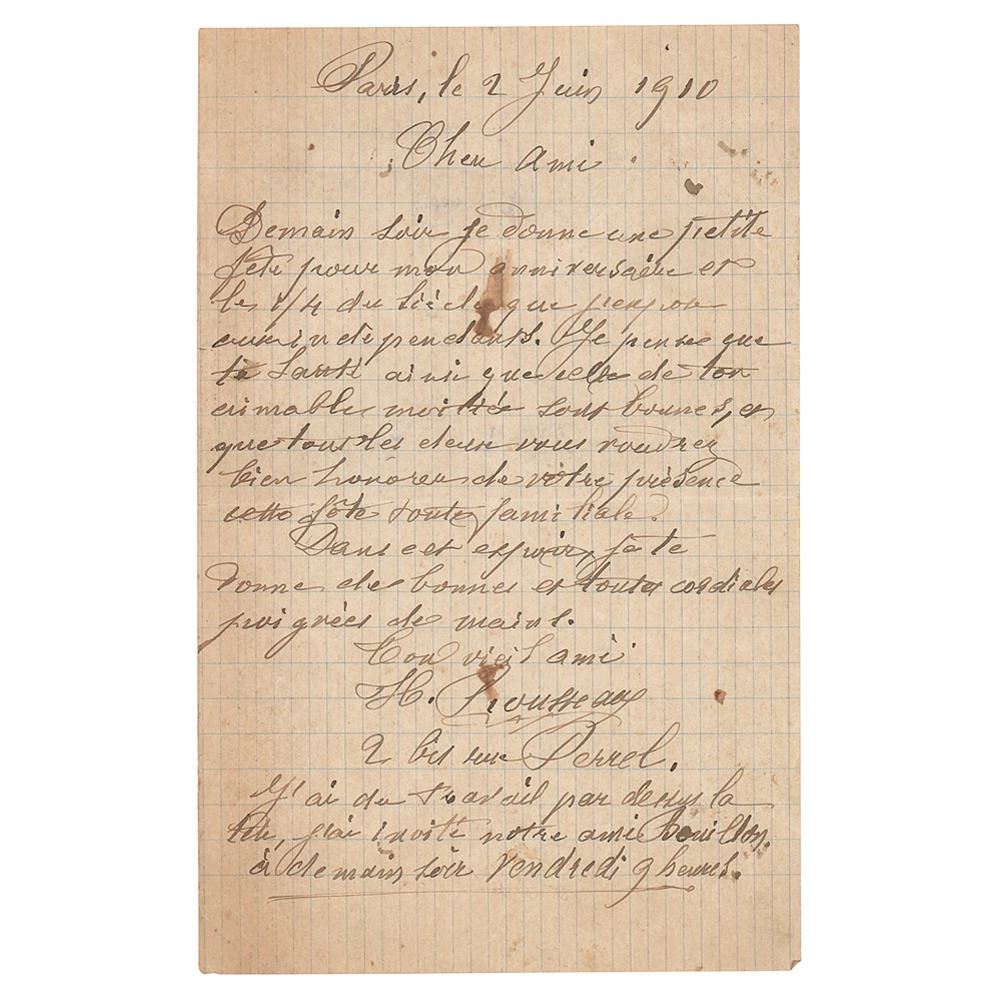 Paris, le 2 Juin 1910
Cher Ami
Demain soir je donne une petite
fête pour mon anniversaire et
les 1/4 du siècle que j'expose
aux indépendants. Je pense que
ta santé ainsi que celle de ton
aimable moitiée sont bonnes, et
que tous les deux vous voudrez
bien honorer de votre présence
cette fête toute familiale.
Dans cet espoir, je te
donne de bonnes et toutes cordiales
poignées de mains.
Ton vieil ami
H. Rousseau
2 bis rue Perrel.
J'ai du travail par dessus la
tête, j'ai invité notre ami
à demain soir vendredi 9 heures.